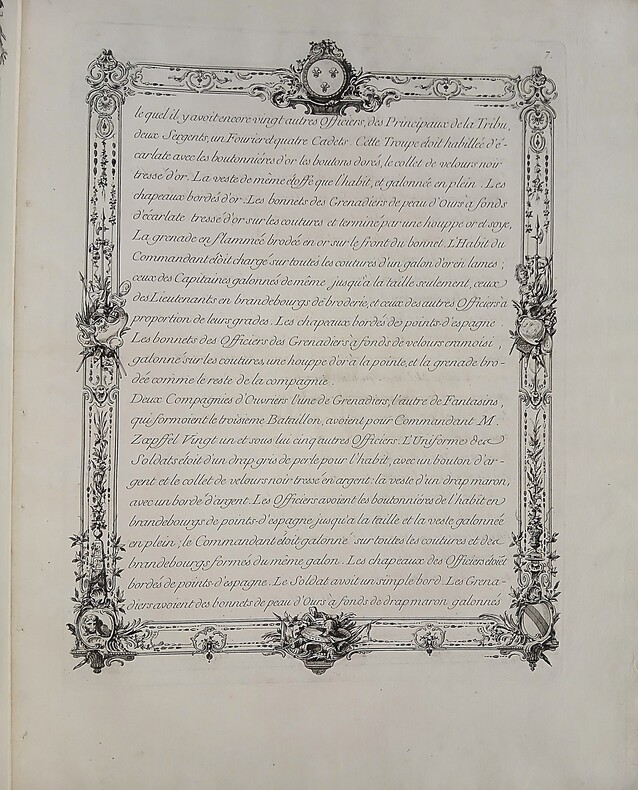 7.
le quel il y avoit encore vingt autres Officiers, des Principaux de la Tribu,
deux Sergents, un Fourier et quatre Cadets. Cette Troupe étoit habillée d'é-
carlate avec les boutonnières d'or les boutons dorés, le collet de velours noir
tressé d'or. La veste de même étoffe que l'habit, et galonnée en plein. Les
chapeaux bordés d'or. Les bonnets des Grenadiers de peau d'Ours à fonds
d'écarlate tressé d'or sur les coutures et terminé par une houppe or et soye,
La grenade enflammée brodée en or sur le front du bonnet. L'Habit du
Commandant étoit chargé sur toutes les coutures d'un galon d'or en lames;
ceux des Capitaines galonnés de même jusqu'à la taille seulement, ceux
des Lieutenants en brandebourgs de broderie, et ceux des autres Officiers à
proportion de leurs grades. Les chapeaux bordés de points-d'espagne.
Les bonnets des Officiers des Grenadiers à fonds de velours cramoisi,
galonné sur les coutures, une houppe d'or à la pointe, et la grenade bro-
dée comme le reste de la compagnie.
Deux Compagnies d'Ouvriers l'une de Grenadiers, l'autre de Fantasins,
qui formoient le troisieme Bataillon, avoient pour Commandant M.
Zapffel Vingt un et sous lui cinq autres Officiers. L'Uniforme des
Soldats étoit d'un drap gris de perle pour l'habit, avec un bouton d'ar-
gent et le collet de velours noir tressé en argent: la veste d'un drap maron,
avec un bordé d'argent. Les Officiers avoient les boutonnières de l'habit en
brandebourgs de points-d'espagne jusqu'à la taille et la veste galonnée
en plein; le Commandant étoit galonné sur toutes les coutures et des
brandebourgs formés du même galon. Les chapeaux des Officiers étoiet
bordés de points-d'espagne. Le Soldat avoit un simple bord. Les Grena-
diers avoient des bonnets de peau d'Ours à fonds de drap maron galonnés